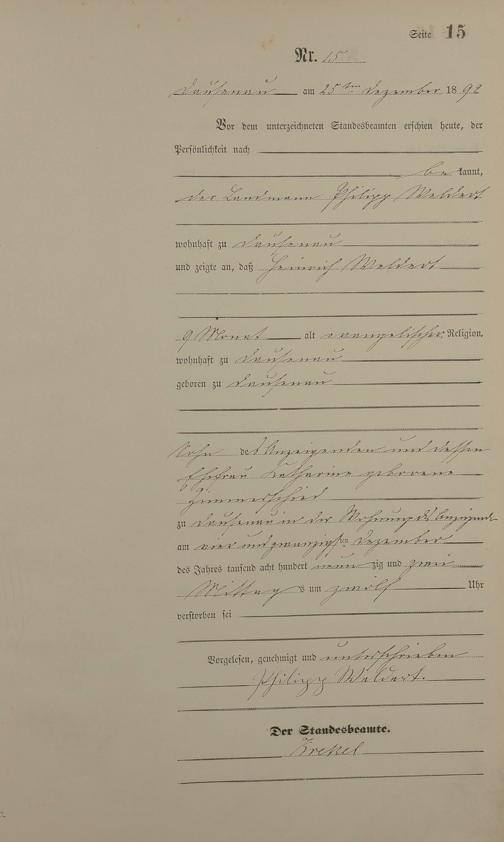 Seite 15
Nr. 15
Dausenau am 25ten Dezember 1892
Vor dem unterzeichneten Standesbeamten erschien heute, der
Persönlichkeit nach
be kannt,
der Landmann Philipp Weldert
wohnhaft zu Dausenau
und zeigte an, daß Heinrich Weldert
9 Monat alt evangelischer Religion,
wohnhaft zu Dausenau
geboren zu Dausenau
Sohn des Anzeigenden und dessen
Ehefrau Katharina geborene
Zimmerschied
zu Dausenau in der Wohnung des
am vier und zwanzigsten Dezember
des Jahres tausend acht hundert neunzig und zwei
Mittags um zwölf Uhr
verstorben sei
Vorgelesen, genehmigt und unterschrieben
Philipp Weldert.
Der Standesbeamte.